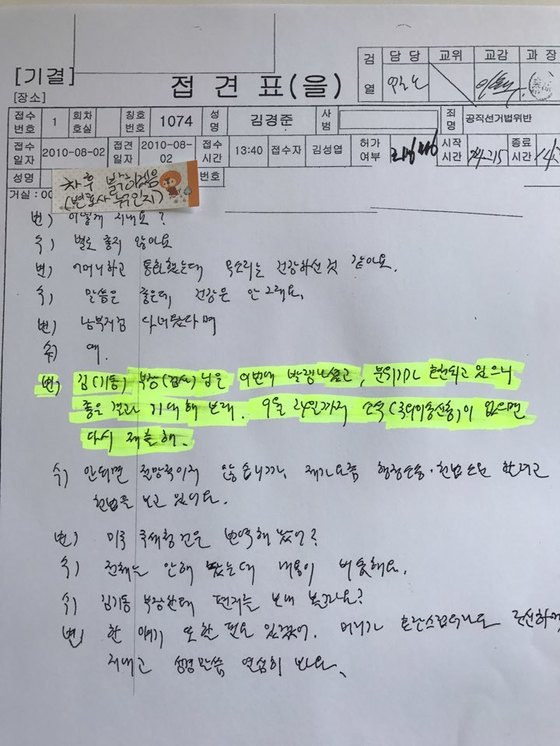 [기결]
[장소]
접견표(을)
검열 담당 교위 교감 과장
접수번호 1 회차호실 칭호번호 1074 성명 김경준 사범 죄명 공직선거법위반
접수일자 2010-08-02 접견일자 2010-08-02 접수시간 13:40 접수자 김성엽 허가여부 시작시간 종료시간
성명 번호
차후 밝히겠음
(변호사 부인지)
거실 : 00
변) 어떻게 지내요?
수) 별로 좋지 않아요
변) 어머니하고 통화했는데 목소리는 건강하신 것 같아요.
수) 말씀은 좋은데, 건강은 안 그래요.
변) 남부지검 다녀왔다며
수) 예.
변) 김(기동) 부장(검사)님은 이번에 발령나셨고, 분위기가 호전되고 있으니
좋은 결과 기대해 보래. 9월 24일까지 소식(국외이송신청)이 없으면
다시 제출해.
수) 안되면 절망적이지 않습니까, 제가 요즘 행정소송·헌법소원 한다고
헌법을 보고 있어요.
변) 미국 국세청건은 번역해 놨어?
수) 전체는 안해 봤는데 내용이 비슷해요.
수) 김기동 부장한테 편지는 보내 볼까요?
변) 한 얘기 또 할 필요 있겠어. 머리가 혼란스럽더라도
지내고 성경말씀 열심히 봐요.